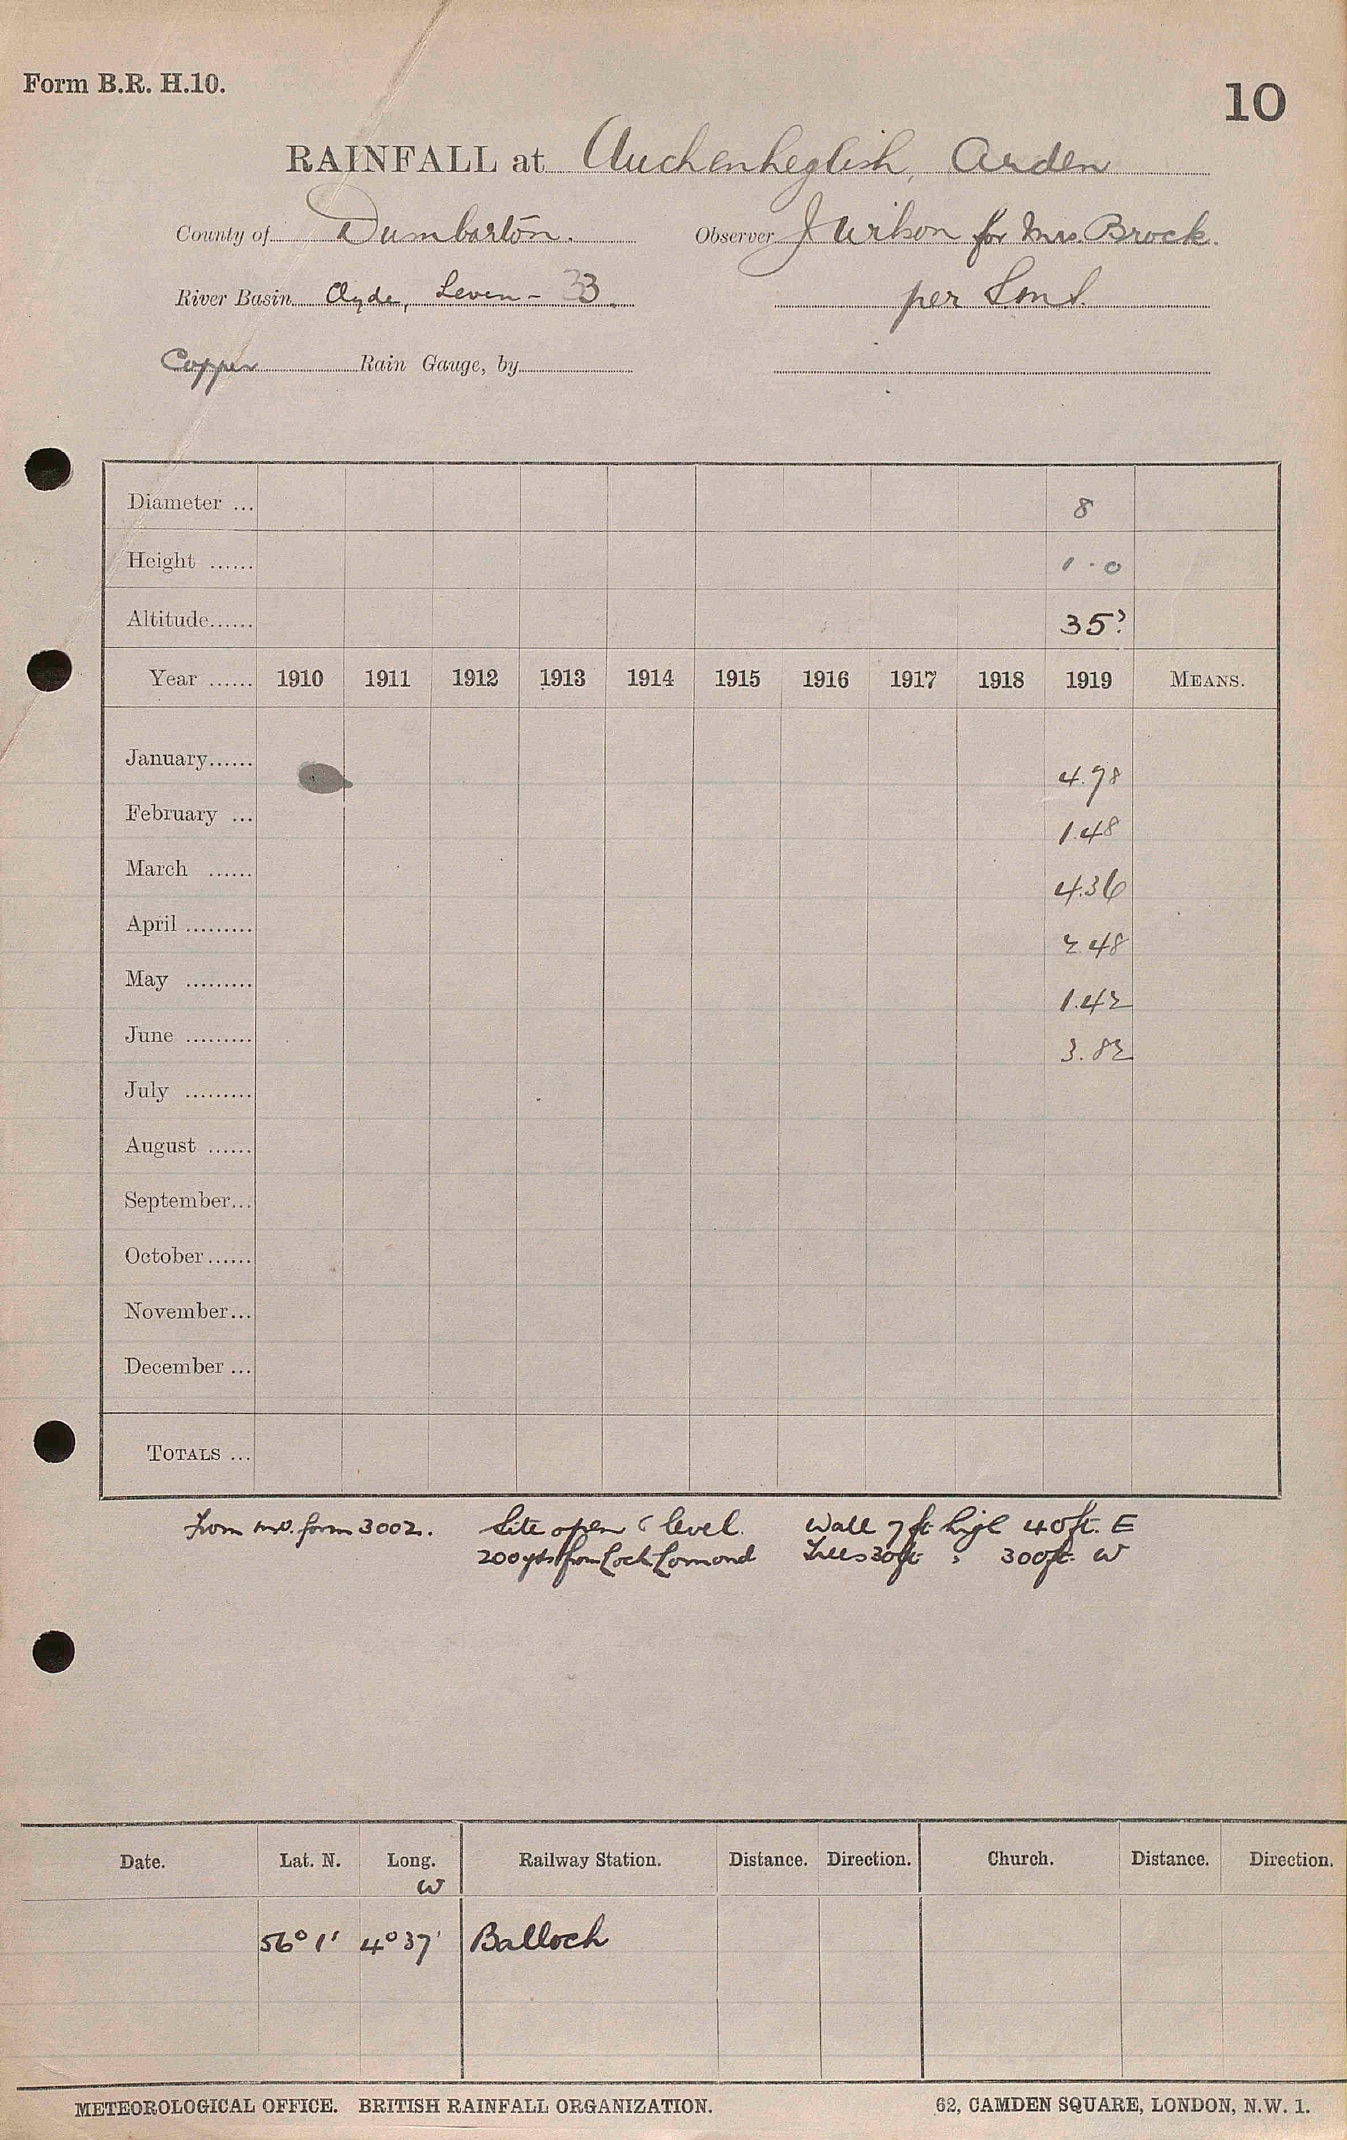 Form B.R. H.10.
10
RAINFALL at Auchenheglish, Arden
County of Dumbarton.
Observer J Wilson for Mrs. Brock.
River Basin Clyde, Leven - 33.
per
Copper Rain Gauge, by
Diameter ... 8
Height ...... 1.0
Altitude...... 35?
Year ...... 1910 1911 1912 1913 1914 1915 1916 1917 1918 1919 MEANS.
January...... 4.98
February ... 1.48
March ...... 4.36
April ......... 2.48
May ......... 1.42
June ......... 3.82
July .........
August ......
September...
October......
November...
December ...
TOTALS ...
From M.O. form 3002. Site open & level. Wall 7 ft high 40 ft. E
200 yds from Loch Lomond Trees 30ft " 300ft. W
Date. Lat. N. Long. W Railway Station. Distance. Direction. Church. Distance. Direction.
56° 1' 4° 37' Balloch
METEOROLOGICAL OFFICE. BRITISH RAINFALL ORGANIZATION. 62, CAMDEN SQUARE, LONDON, N.W. 1.